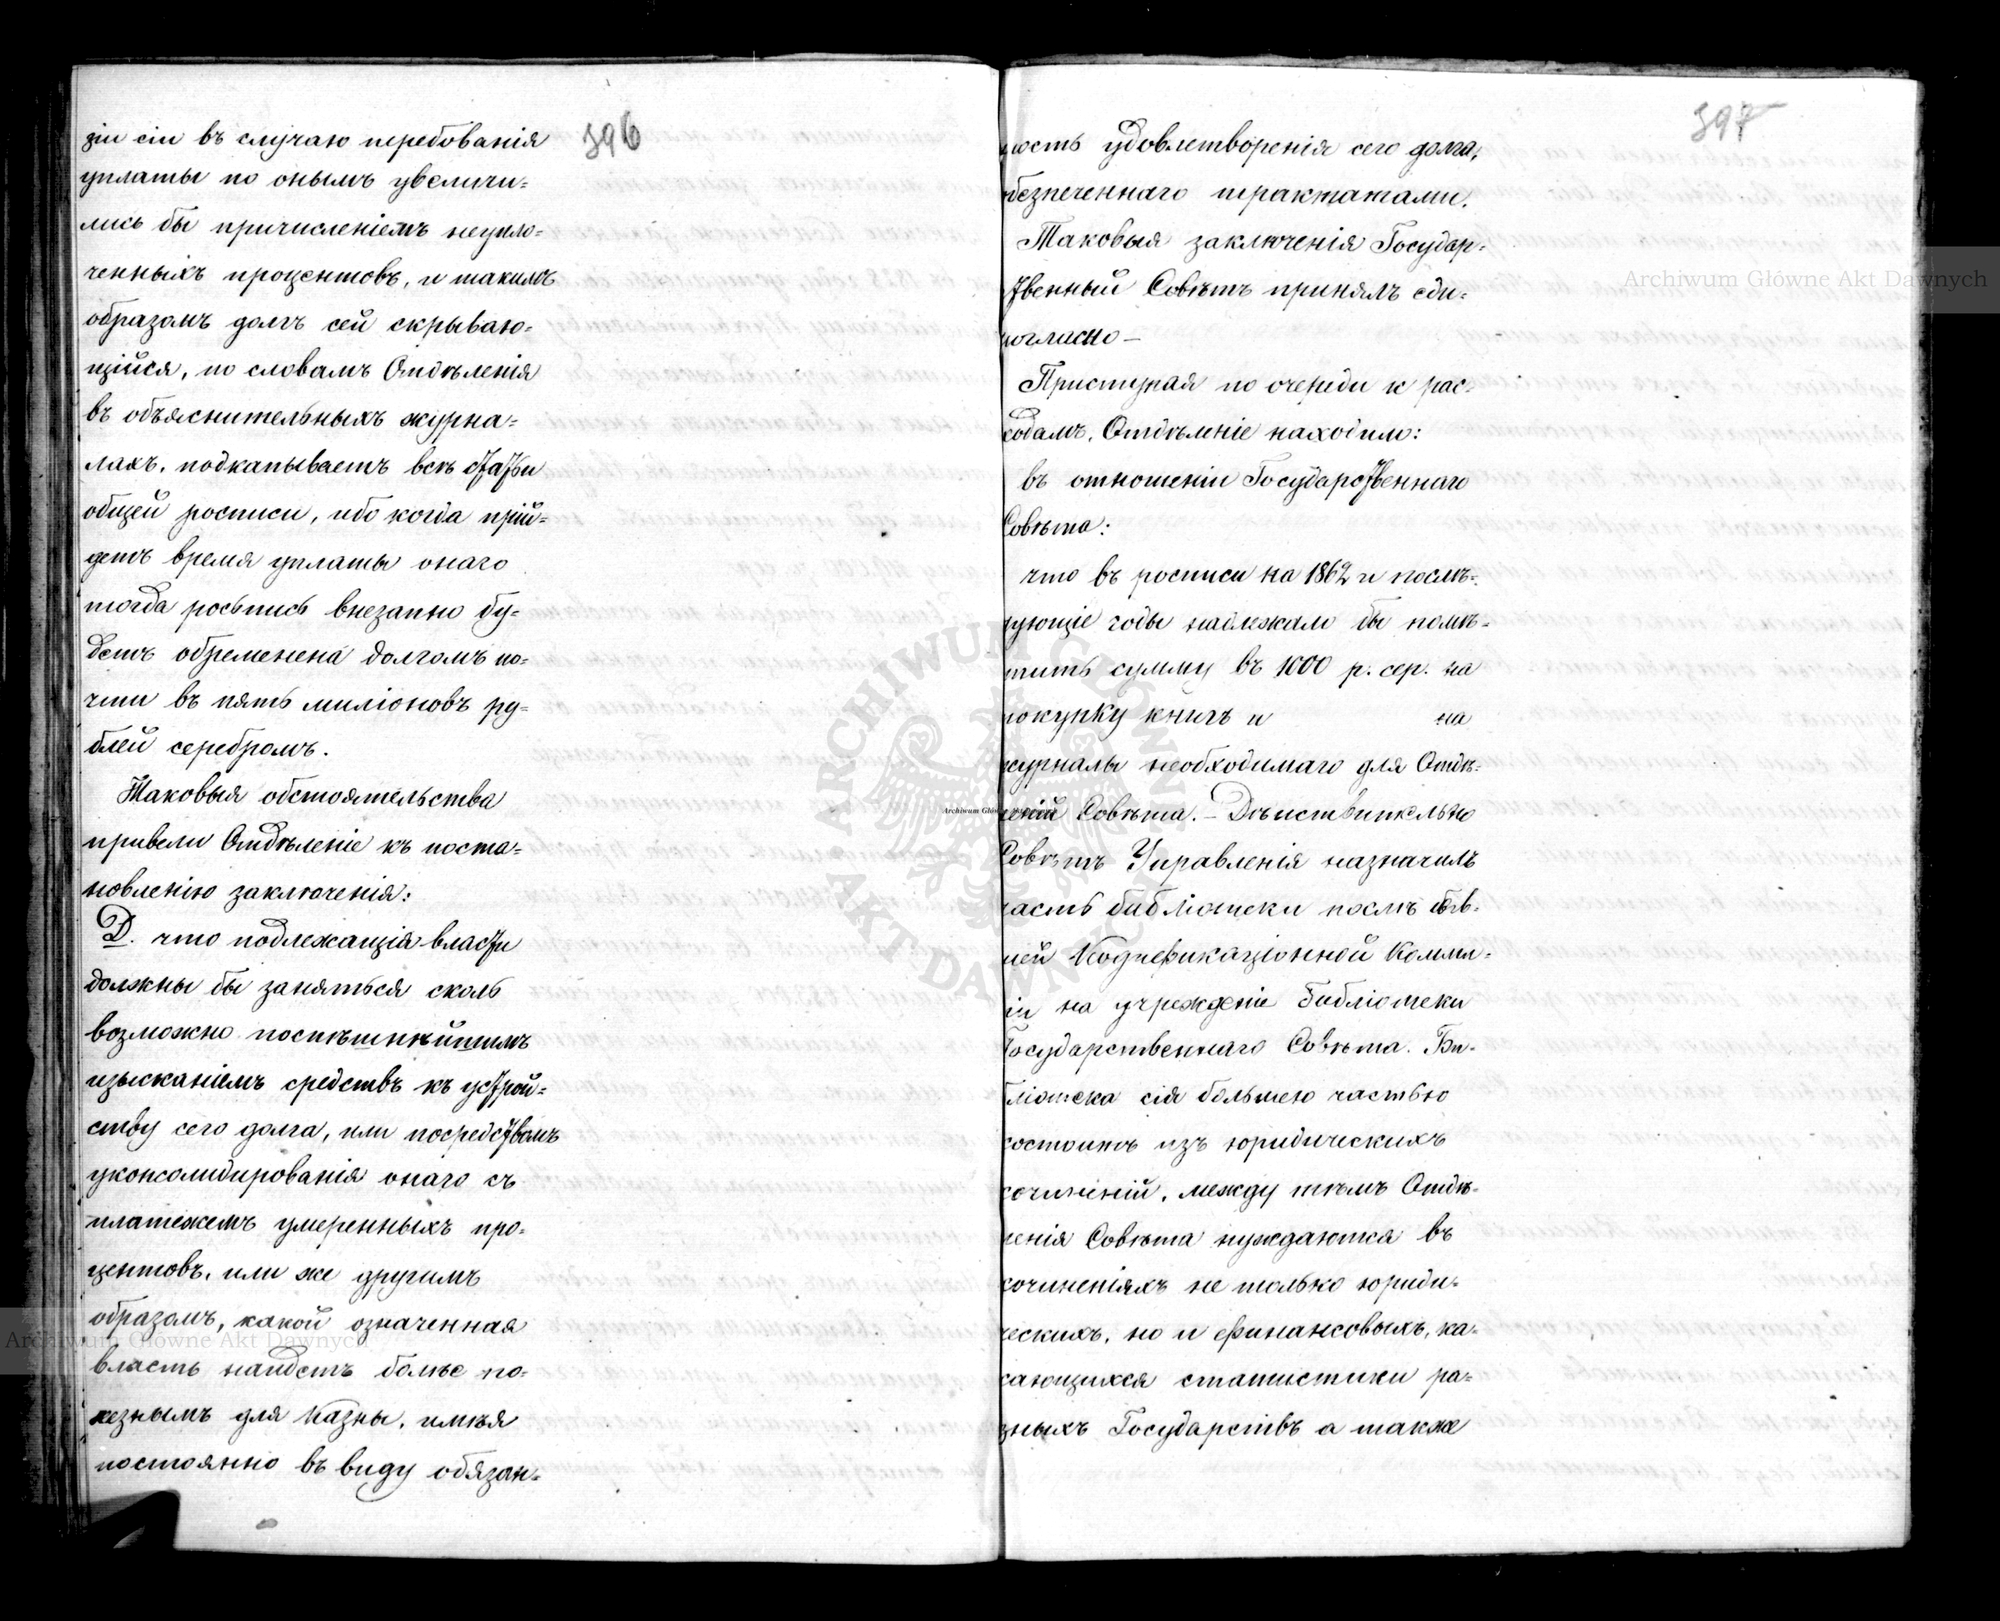 396
зіи сіи въ случаю требованія
уплаты по онымъ увеличи-
лись бы причисленіемъ неупло-
ченныхъ процентовъ, и такимъ
образомъ долгъ сей скрываю-
щійся, по словамъ Отдѣленія
въ объяснительныхъ журна-
лахъ, подкапываетъ всѣ статьи
общей росписи, ибо когда прій-
детъ время уплаты онаго
тогда роспись внезапно бу-
детъ обременена долгомъ по-
чти въ пять миліоновъ ру-
блей серебромъ.
Таковыя обстоятельства
привели Отдѣленіе къ поста-
новленію заключенія:
D. что подлежащія власти
должны бы заняться сколь
возможно поспѣшнѣйшимъ
изысканіемъ средствъ къ устрой-
ству сего долга, или посредствомъ
уконсолидированія онаго съ
платежемъ умеренныхъ про-
центовъ, или же другимъ
образомъ, какой означенная
власть найдетъ болѣе по-
лезнымъ для Казны, имѣя
постоянно въ виду обязан-
397
ность удовлетворенія сего долга,
безпеченнаго трактатами.
Таковыя заключенія Государ-
ственный Совѣтъ принялъ еди-
ногласно —
Приступая по очереди к рас-
ходамъ, Отдѣленіе находило:
въ отношеніи Государственнаго
Совѣта:
что въ росписи на 1862 и послѣ-
дующіе годы надлежало бы помѣ-
тить сумму въ 1000 р. сер. на
покупку книгъ и на
журналы необходимаго для Отдѣ-
леній Совѣта. — Дѣйствительно
Совѣтъ Управленія назначилъ
часть библіотеки послѣ быв-
шей Кодификаціонной Комми-
іи на учрежденіе библіотеки
Государственнаго Совѣта. Би-
бліотека сія большею частью
состоитъ изъ юридическихъ
сочиненій, между тѣмъ Отдѣ-
ленія Совѣта нуждаются въ
сочиненіяхъ не только юриди-
ческихъ, но и финансовыхъ, ка-
сающихся статистики ра-
зныхъ Государствъ а также
Archiwum Główne Akt Dawnych
Archiwum Główne Akt Dawnych
ARCHIWUM GŁÓWNE AKT DAWNYCH